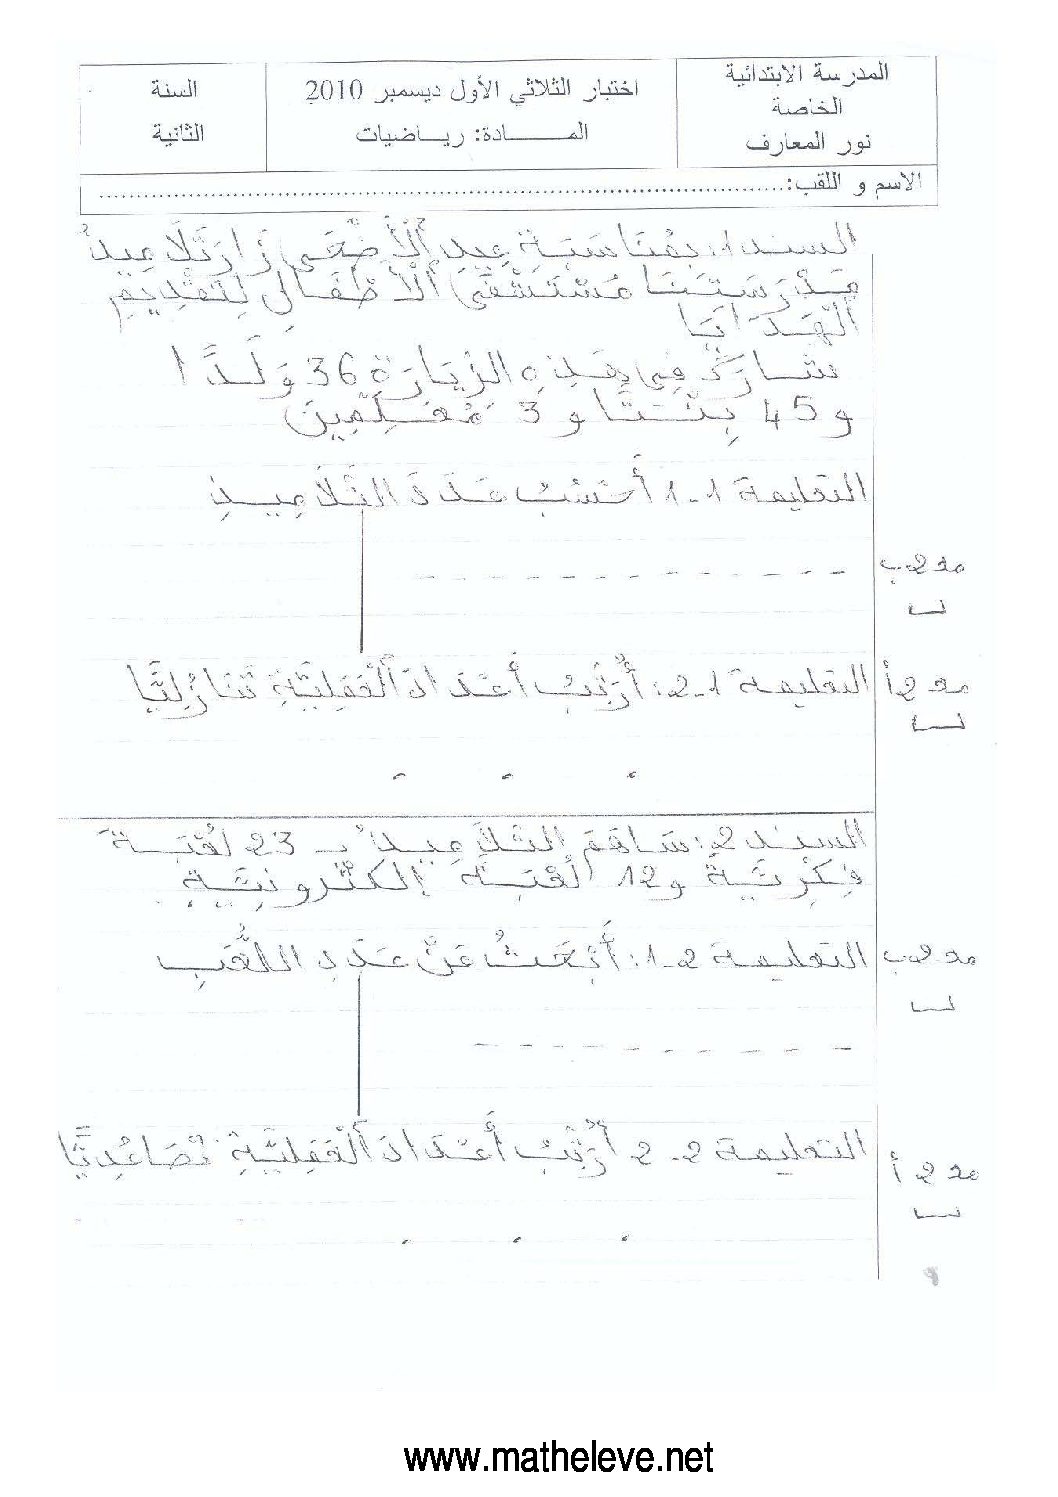 المدرسة الابتدائية
الخاصة
نور المعارف
اختبار الثلاثي الأول ديسمبر 2010
المــــــادة: ريـاضيات
السنة
الثانية
الاسم و اللقب:
السند 1: بِمُنَاسَبَةِ عِيدِ اَلْأَضْحَى زَارَ تَلَامِيذُ
مَدْرَسَتِنَا مُسْتَشْفَى اَلْأَطْفَالِ لِتَقْدِيمِ
اَلْهَدَايَا
شَارَكَ فِي هَذِهِ الزِّيَارَةِ 36 وَلَدًا
و 45 بِنْتًا و 3 مُعَلِّمِينَ
التعليمة 1-1 أَحْسُبُ عَدَدَ التَّلَامِيذِ
مع 2 ب
التعليمة 1-2: أُرَتِّبُ أَعْدَادَ اَلْعَمَلِيَّةِ تَنَازُلِيًّا
مع 2 أ
السند 2: سَاهَمَ التَّلَامِيذُ بـ 23 لُعْبَةً
فِكْرِيَّةً و 12 لُعْبَةً إِلِكْتْرُونِيَّةً
التعليمة 2-1: أَبْحَثُ عَنْ عَدَدِ اللُّعَبِ
مع 2 ب
التعليمة 2-2 أُرَتِّبُ أَعْدَادَ اَلْعَمَلِيَّةِ تَصَاعُدِيًّا
مع 2 أ
www.matheleve.net